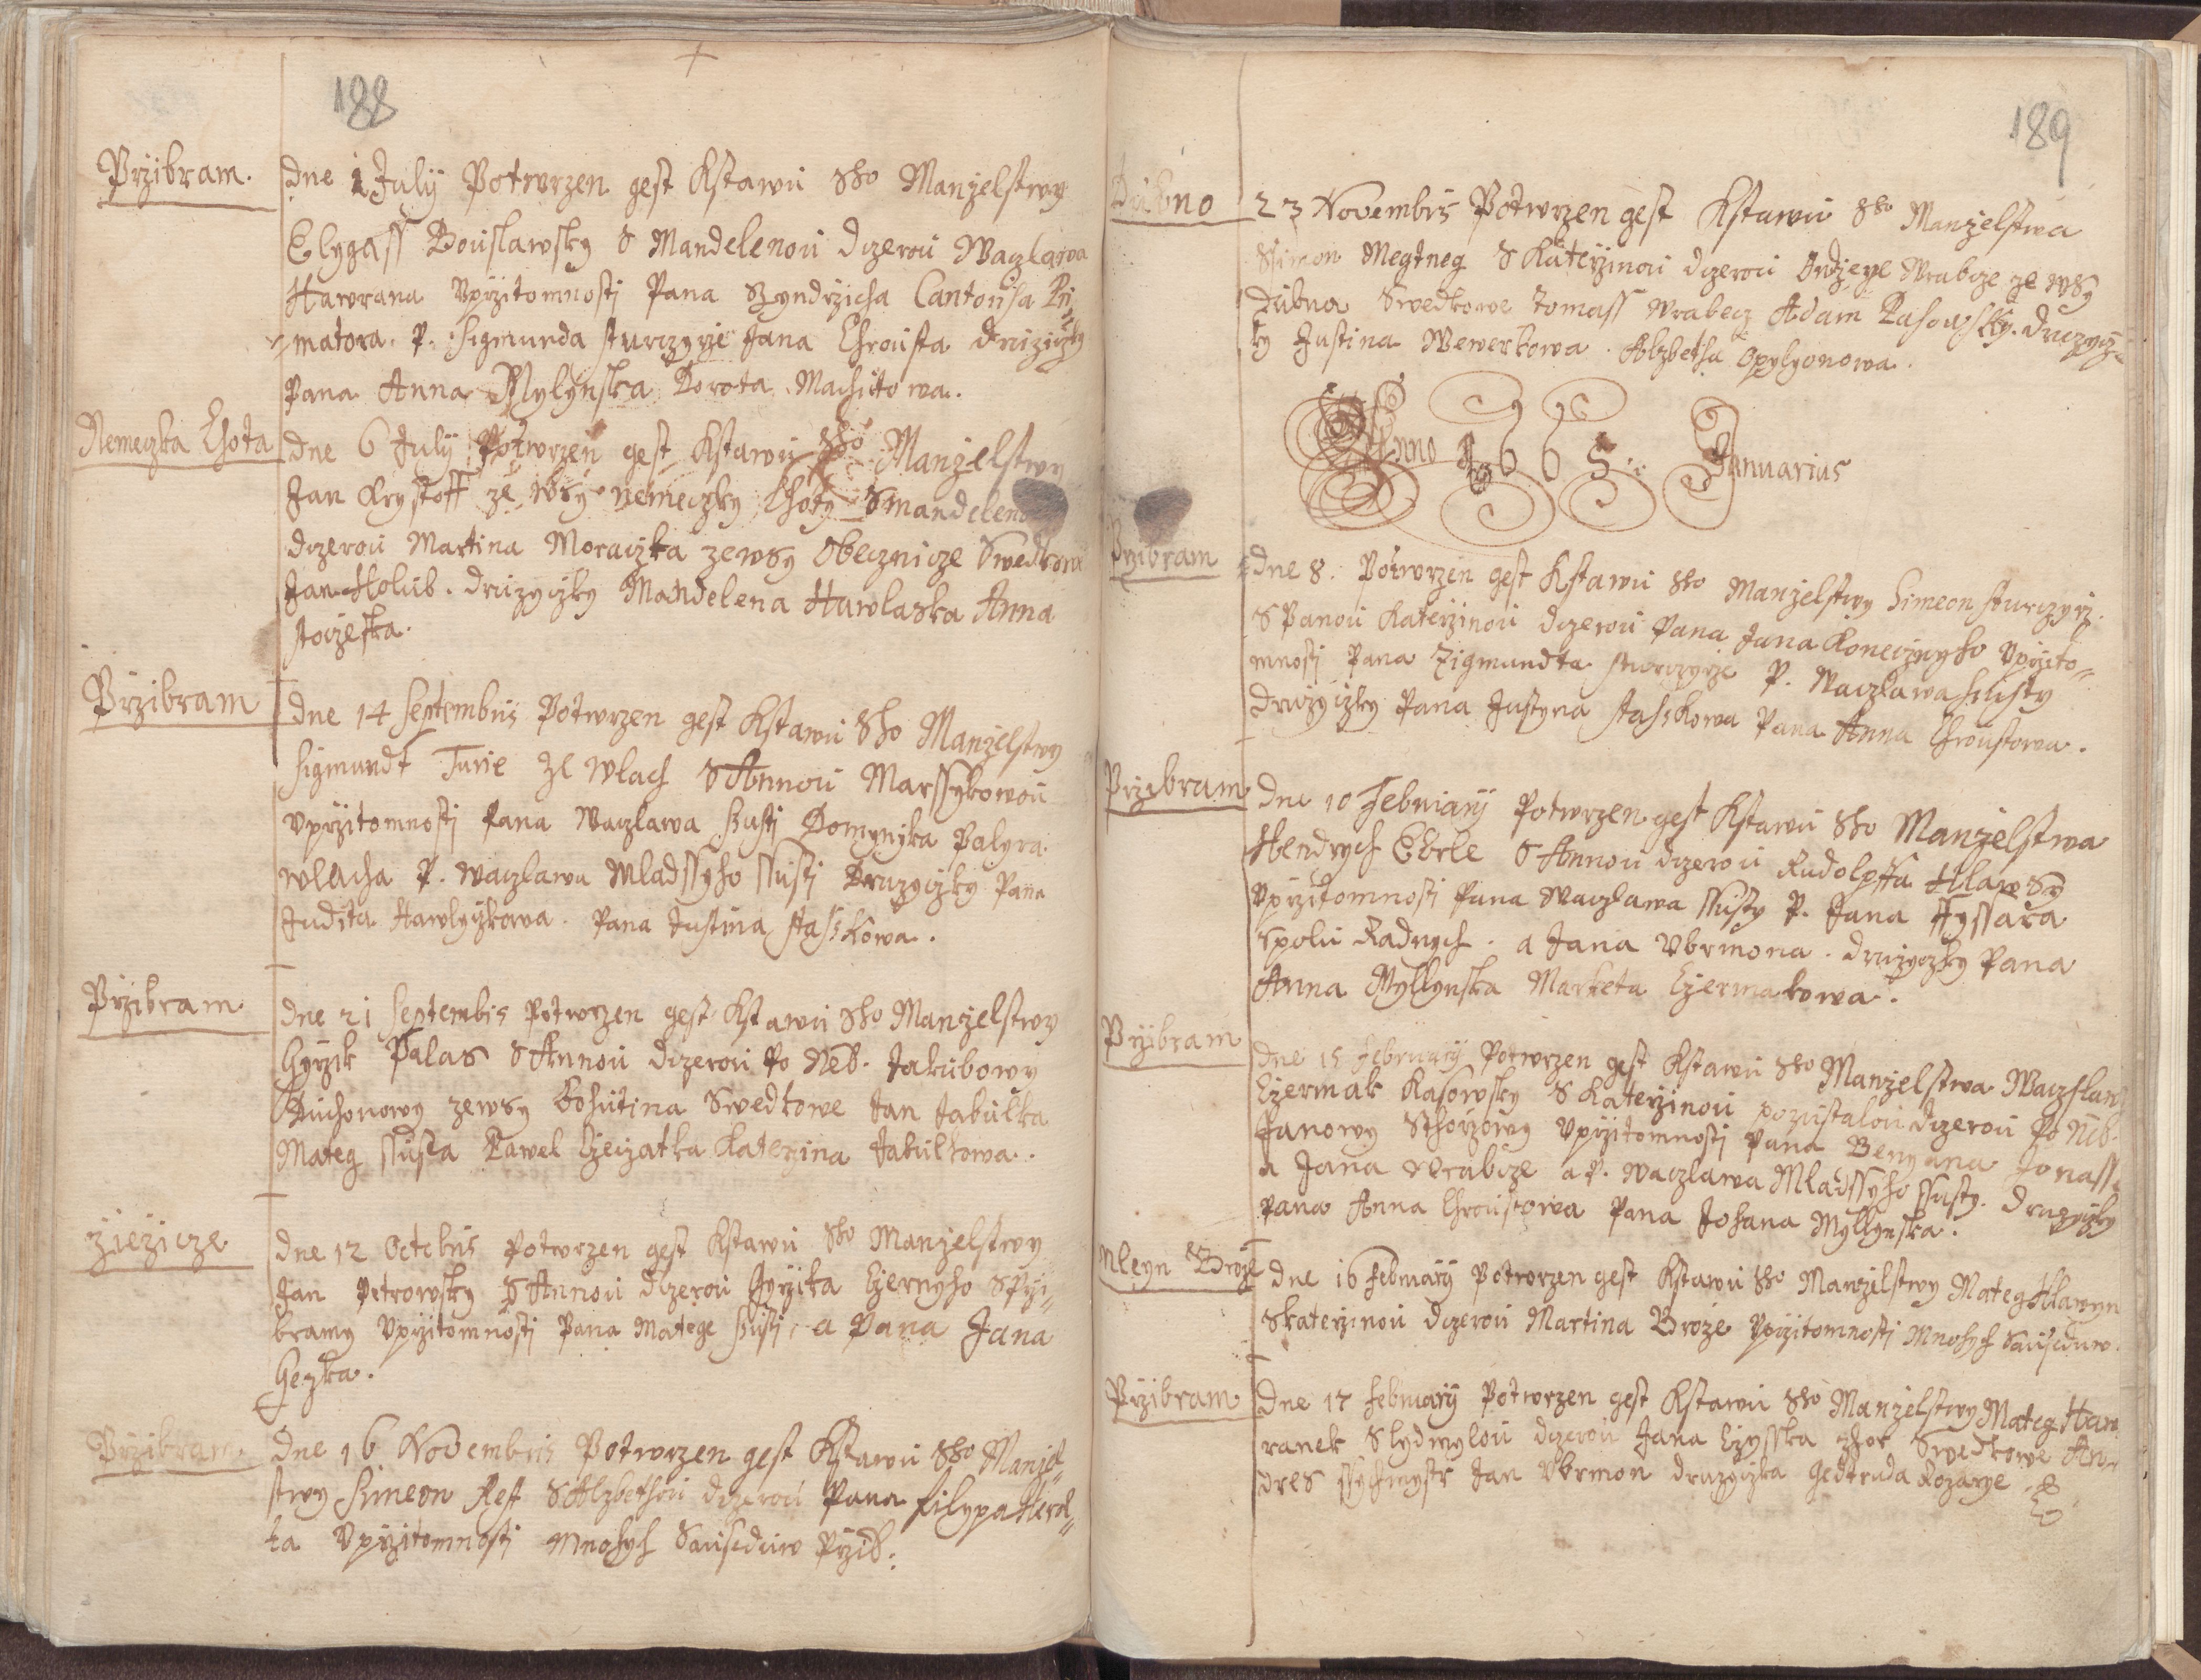 188
Przibram.
dne 1 July Potwrzen gest Kstawu Sho Manzelstwy
Elygass Bouslawsky S Mandelenou dczerou Waczlawa
Hawrana Vprzitomnosti Pana Gyndrzicha Cantousa Pri
matora. P. Sigmunda Sturczyrze Jana Chrousta druziczky
Pana Anna Mylynska Dorota Machutowa.
Nemeczka Lhota
dne 6 July Potwrzen gest Kstawu Sho Manzelstwy
Jan Krystoff ze wsy nemeczky Lhoty S mandeleno
dczerou Martina Moraczka ze wsy Obecznicze Swedkowe
Jan Holub. druzyczky Mandelena Hawlaska Anna
Przibram
dne 14 Septembris Potwrzen gest Kstawu Sho Manzelstwy
Sigmundt Turie ze wlach S Annou Marssykowou
Vprzitomnosti Pana Waczlawa ssusti Domynyka Palyra
wlacha P. Waczlawa Mladssyho ssusti Druzyczky Pana
Judita Hawlyczkowa. Pana Justina Stasskowa.
Przibram
dne 21 Septembris Potwrzen gest Kstawu Sho Manzelstwy
Gyrzik Palas S Annou dczerou Po Neb. Jakubowy
Duchonowy ze wsy Bohutina Swedkowe Jan Jabulka
Mateg ssusta Pawel Czeczatka Katerzina Jabulkowa.
ziezicze
dne 12 Octobris Potwrzen gest Kstawu Sho Manzelstwy
Jan Petrowsky S Annou dczerou Gyrzika Czernyho S Przi
bramy Vprzitomnosti Pana Matege ssusti, a Pana Jana
Gezka.
Przibram
dne 16 Novembris Potwrzen gest Kstawu Sho Manzel
stwy Simeon Rest S Alzbethou dczerou Pana Filypa Herol
ta Vprzitomnosti mnohych Sauseduw Przib.
189
Dubno
23 Novembris Potwrzen gest Kstawu Sho Manzelstwa
Ssimon Megtneg S Katerzinou dczerou Ondrzege Wrabcze ze wsy
Dubna Swedkowe Tomass Wrabecz Adam Kasowsky. druzycz
ky Justina Wewerkowa. Alzbetha Opylyonowa.
Anno 1665 Januarius
Przibram
dne 8. Potwrzen gest Kstawu Sho Manzelstwy Simeon Sturczyrz
S Panou Katerzinou dczerou Pana Jana Konecznyho Vprzito
mnosti Pana Zigmundta Sturczyrze P. Waczlawa ssusty
Druzyczky Pana Justyna Stasskowa Pana Anna Chroustowa.
Przibram
dne 10 February Potwrzen gest Kstawu Sho Manzelstwa
Hendrych Eberle S Annou dczerou Rudolpffa Hlawsy
Vprzitomnosti Pana Waczlawa ssusty P. Jana Fyssara
spolu Radnych. a Jana Vbrmona. druzyczky Pana
Anna Myllynska Marketa Czermakowa.
Przibram
dne 15 February Potwrzen gest Kstawu Sho Manzelstwa Waczslaw
Czermak Kasowsky S Katerzinou pozustalou dczerou Po Neb.
Janowy Sthorzowy Vprzitomnosti Pana Benyana Jonass
a Jana Wrabcze a P. Waczlawa Mladssyho ssusty. druzyczky
Pana Anna Chroustowa Pana Johana Myllynska.
Mleyn Broze
dne 16 February Potwrzen gest Kstawu Sho Manzelstwy Mateg Hlawyn
S katerzinou dczerou Martina Broze Vprzitomnosti Mnohych Sauseduw.
Przibram
dne 17 February Potwrzen gest Kstawu Sho Manzelstwy Mateg Haw
ranek S lydmylou dczerou Jana Czysska zhor Swedkowe An
dres ssychmystr Jan Vbrmon druzyczka Gedtruda Rozarye